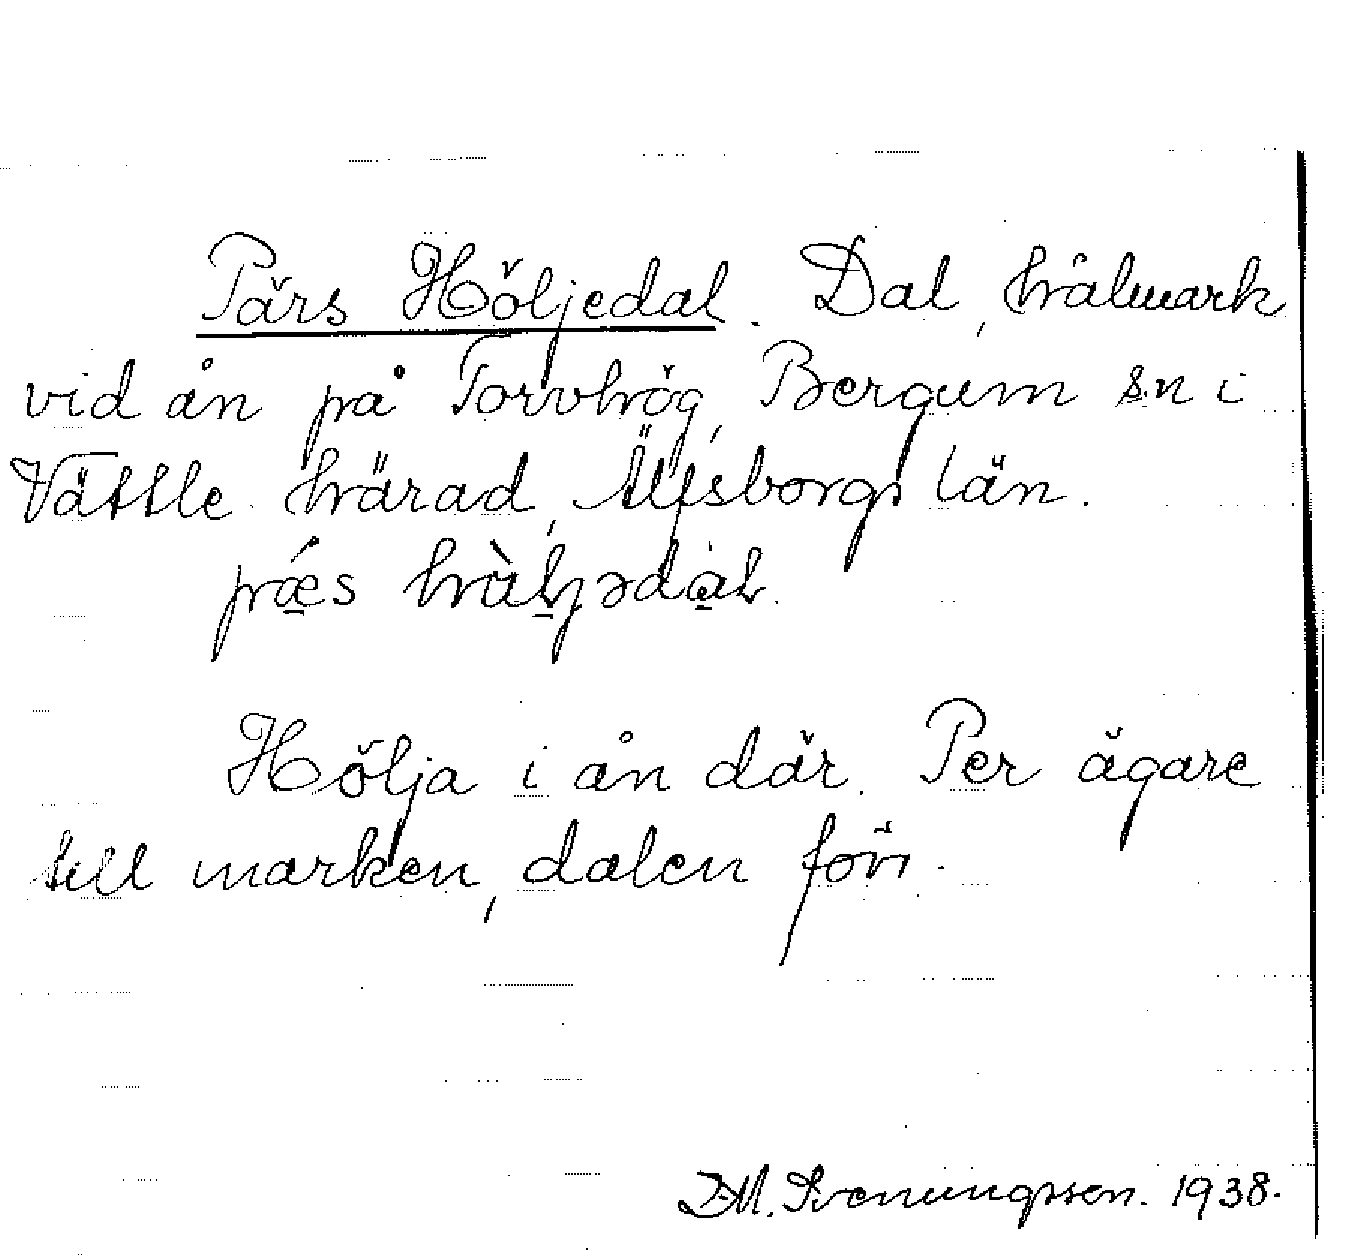 Pärs Höljedal. Dal, hålmark
vid ån på Torvhög, Bergum sn i
Vättle härad, Älfsborgs län.
Hölja i ån där. Per ägare
till marken, dalen förr.
D.M. Svenungsson. 1938.